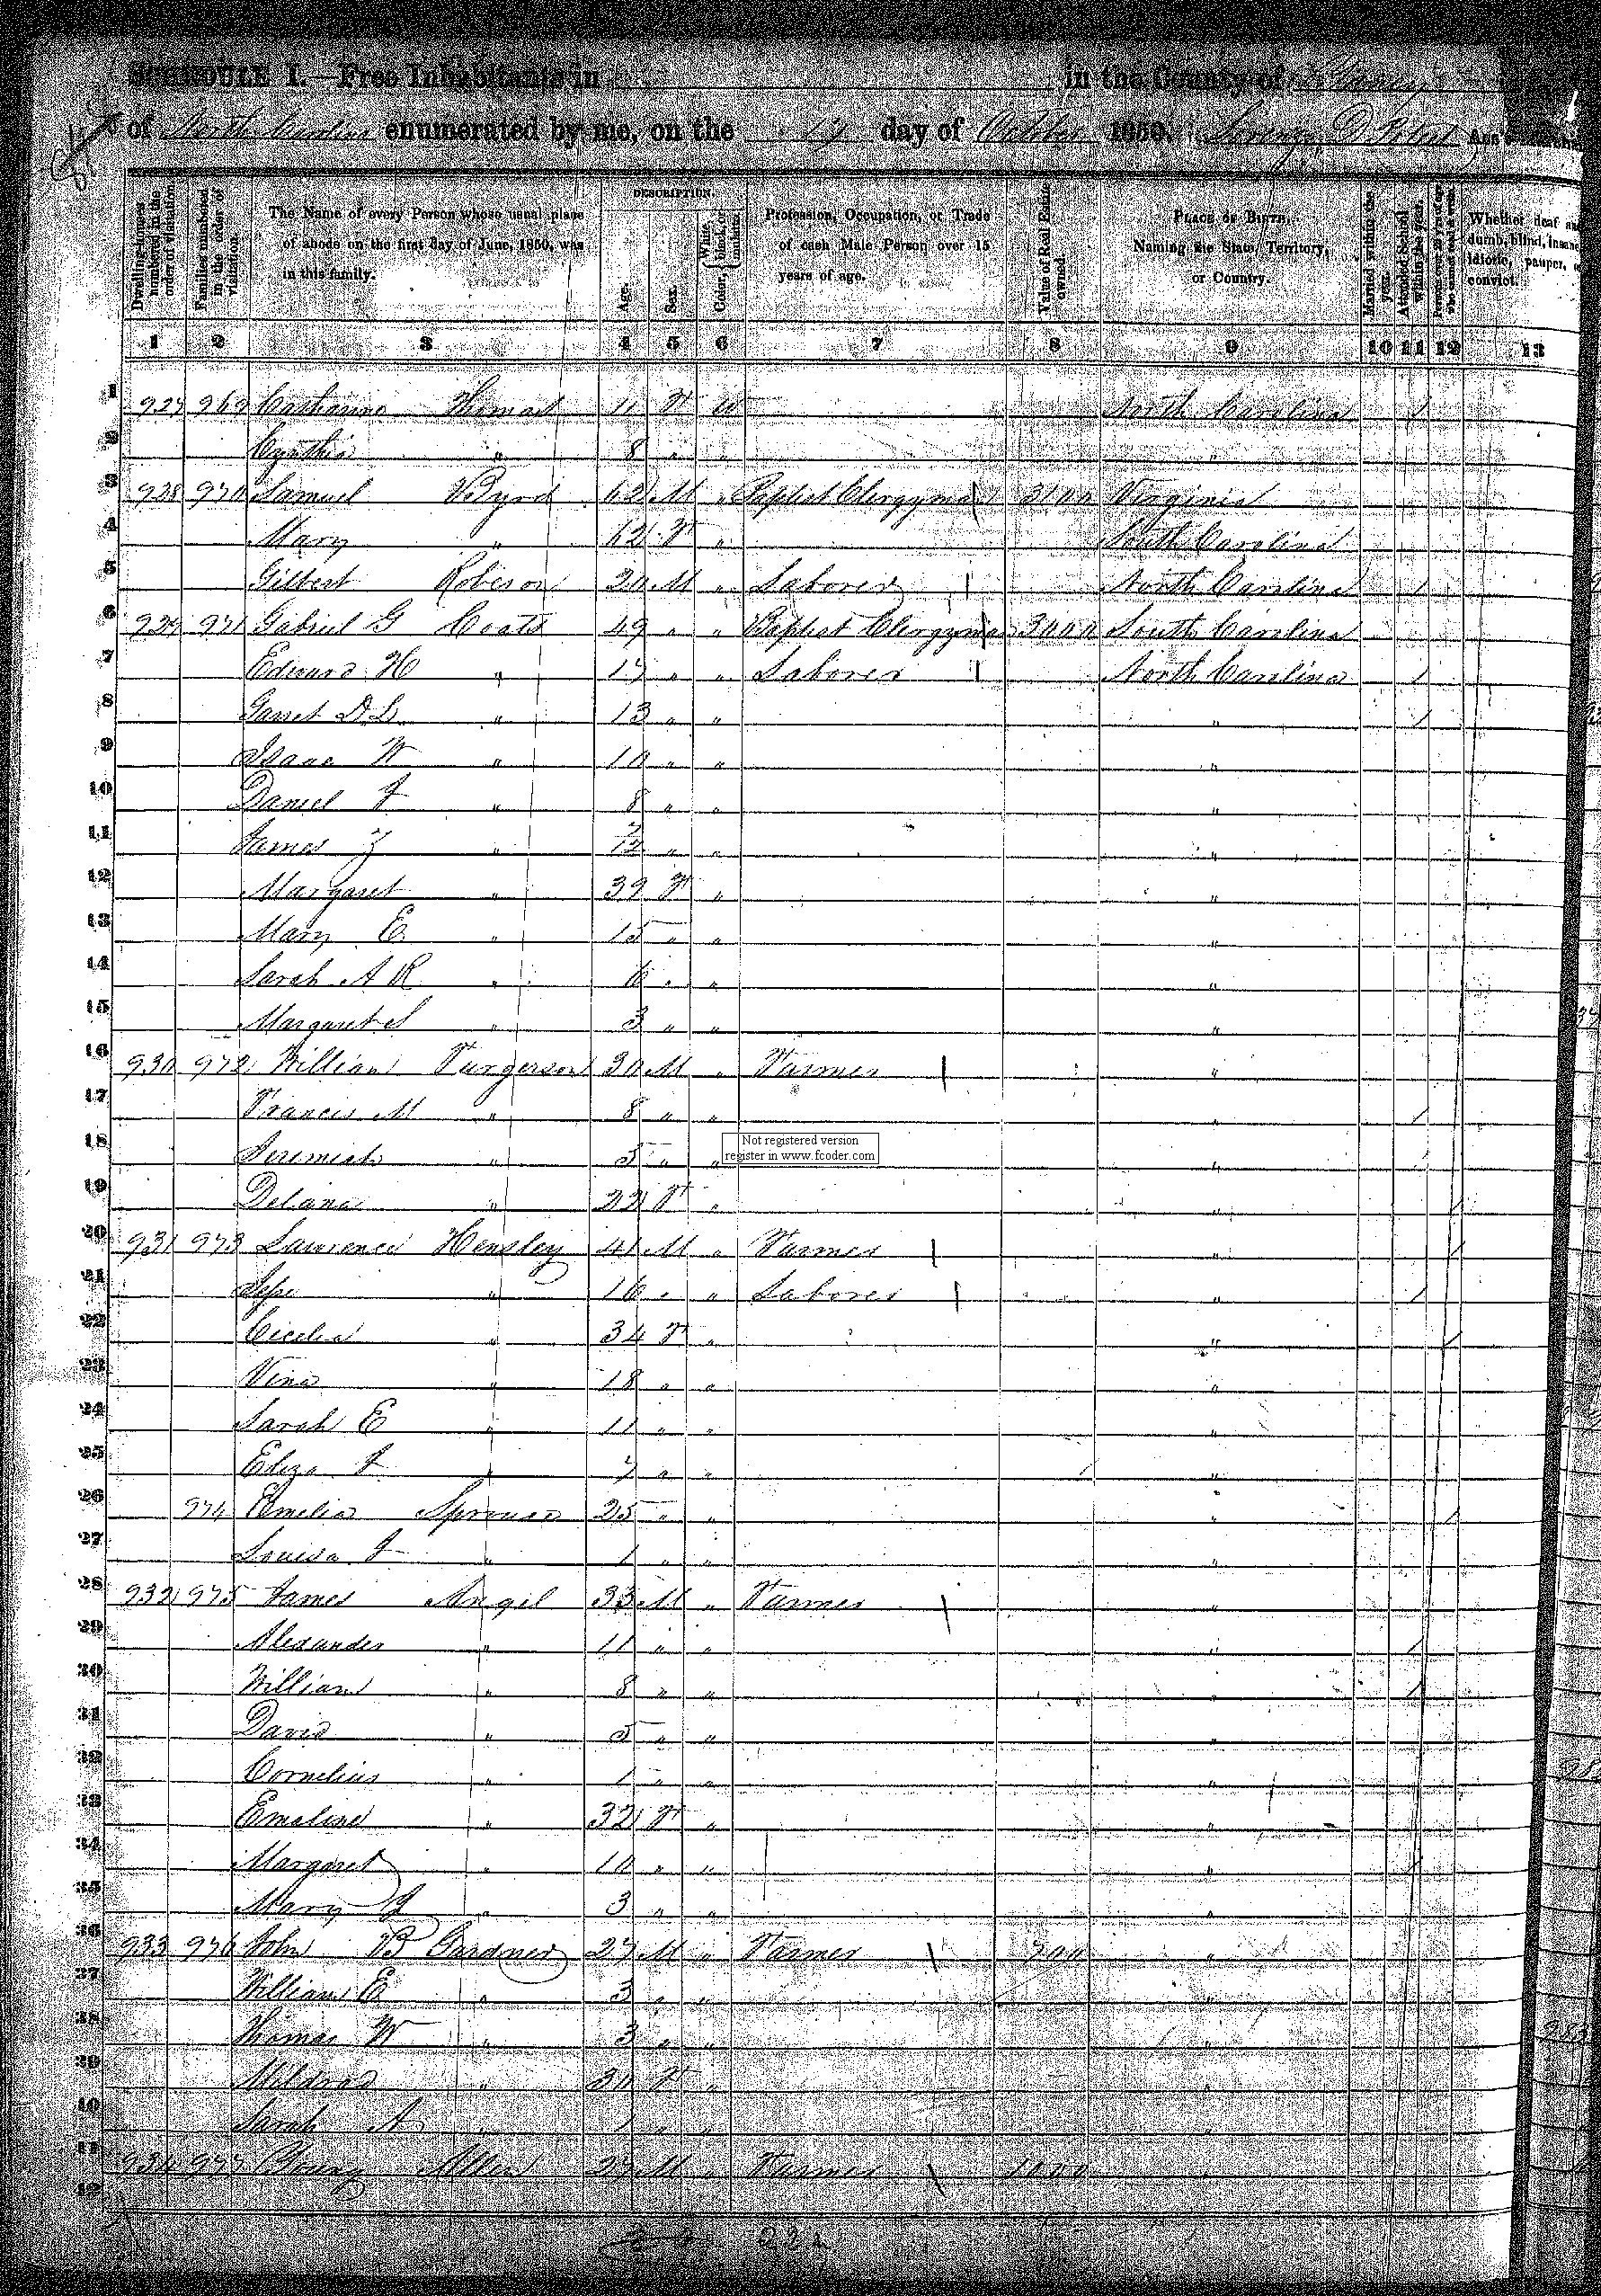 SCHEDULE I.—Free Inhabitants in in the County of Yancey
of North Carolina enumerated by me, on the 17 day of October 1850. Lorenzo D Ass't Marshal
Dwelling-houses numbered in the order of visitation.
Families numbered in the order of visitation.
The Name of every Person whose usual place of abode on the first day of June, 1850, was in this family.
DESCRIPTION.
Age.
Sex.
Color, White, black, or mulatto.
Profession, Occupation, or Trade of each Male Person over 15 years of age.
Value of Real Estate owned.
PLACE OF BIRTH, Naming the State, Territory, or Country.
Married within the year.
Attended School within the year.
Persons over 20 years of age who cannot read & write.
Whether deaf and dumb, blind, insane, idiotic, pauper, or convict.
1 2 3 4 5 6 7 8 9 10 11 12 13
1 927 969 Catharine Thomas 11 F W North Carolina 1
2 Cynthia " 8 " " "
3 928 970 Samuel Byrd 62 M " Baptist Clergyman 3100 Virginia
4 Mary " 62 F " South Carolina
5 Gilbert Roberson 20 M " Laborer North Carolina 1
6 929 971 Gabriel G Coats 49 " " Baptist Clergyman 3000 South Carolina
7 Edward H " 17 " " Laborer North Carolina 1
8 Garret D. L. " 13 " " " 1
9 Isaac W " 10 " " "
10 Daniel J " 8 " " "
11 James Z " 7/12 " " "
12 Margaret " 39 F " "
13 Mary E " 15 " " "
14 Sarah A R " 6 " " "
15 Margaret S " 3 " " "
16 930 972 William Furgerson 30 M " Farmer "
17 Francis M " 8 " " " 1
18 Jeremiah " 5 " " "
19 Delana " 22 F " " 1
20 931 973 Lawrence Hensley 41 M " Farmer " 1
21 " 16 " " Laborer " 1
22 Cicelia " 34 F " " 1
23 Vina " 18 " " "
24 Sarah E " 11 " " "
25 Eliza J " 7 " " "
26 974 Emelia Sprouse 25 " " " 1
27 Louisa J " 1 " " "
28 932 975 James Angel 33 M " Farmer "
29 Alexander " 11 " " " 1
30 William " 8 " " " 1
31 David " 5 " " "
32 Cornelius " 1 " " "
33 Emeline " 32 F " "
34 Margaret " 10 " " " 1
35 Mary J " 3 " " "
36 933 976 John B Gardner 27 M " Farmer 700 "
37 William E " 3 " " "
38 Thomas W " 3 " " "
39 Mildred " 30 F " "
40 Sarah A " 1 " " "
41 934 977 Young Allen 27 M " Farmer 1000 "
42
Not registered version
register in www.fcoder.com